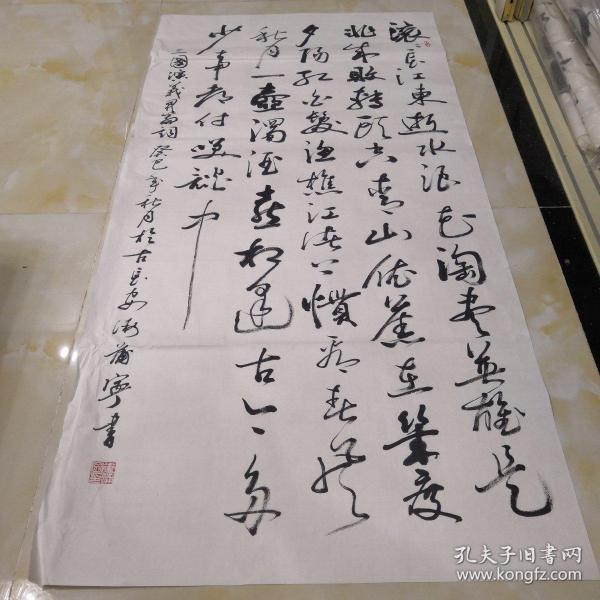 滚滚长江东逝水浪花淘尽英雄是
非成败转头空青山依旧在几度
夕阳红白发渔樵江渚上惯看秋月春风
一壶浊酒喜相逢古今多
少事都付笑谈中
三国演义开篇词癸巳年秋月於古长安
书
孔夫子旧书网
www.kongfz.com